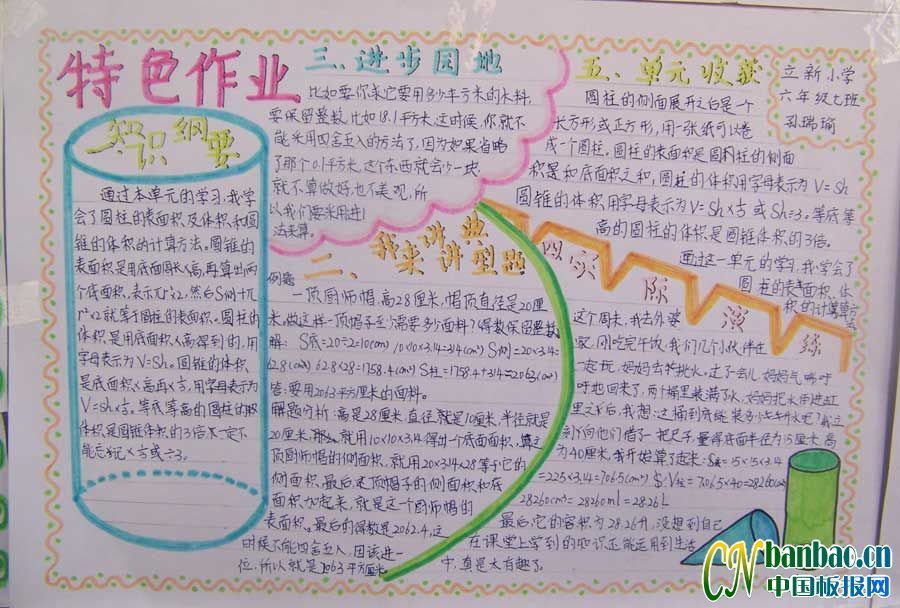 特色作业
知识纲要
通过本单元的学习,我学
会了圆柱的表面积及体积,和圆
锥的体积的计算方法。圆锥的
表面积是用底面周长×高,再算出两
个底面积,表示
就等于圆柱的表面积。圆柱的
体积是用底面积×高得到的,用
字母表示为V=Sh。圆锥的体积
是底面积×高再×⅓,用字母表示为
V=Sh×⅓。等底等高的圆柱的
体积是圆锥体积的3倍
能忘记×⅓或÷3。
三、进步园地
比如要你求它要用多少平方米的木料,
要保留整数,比如18.1平方米,这时候,你就不
能采用四舍五入的方法了,因为如果省略
了那个0.1平方米,这个东西就会少一块,
就不算做好,也不美观,所
以我们要采用进1
法来算。
二、我来讲典型题
例题
一顶厨师帽,高28厘米,帽顶直径是20厘
米,做这样一顶帽子至少需要多少面料?得数保留整数
解: S底=20÷2=10(cm) 10×10×3.14=314(cm²) S侧=20×3.14=
62.8(cm) 62.8×28=1758.4(cm²) S柱=1758.4+314≈2063(cm²)
答:要用2063平方厘米的面料。
解题分析:高是28厘米,直径就是10厘米,半径就是
20厘米,那么,就用10×10×3.14得出一个底面面积,
顶厨师帽的侧面积,就用20×3.14×28等于它的
侧面积,最后是顶帽子的侧面积和底
面积加起来,就是这个厨师帽的
表面积,最后的得数是2062.4,这
时候不能四舍五入,因该进一
位,所以就是2063平方厘米
五、单元收获
圆柱的侧面展开之后是一个
长方形或正方形,用一张纸可以卷
成一个圆柱。圆柱的表面积是圆柱的侧面
积和底面积之和,圆柱的体积用字母表示为V=Sh
圆锥的体积用字母表示为V=Sh×⅓或Sh÷3。等底等
高的圆柱的体积是圆锥体积的3倍。
通过这一单元的学习,我学会了
圆柱的表面积、体
积的计算
立新小学
六年级七班
孙瑞瑜
四、实际演练
这个周末,我去外婆
家,刚吃完午饭,我们几个小伙伴在
一起玩,妈妈去挑水,过了一会儿,妈妈气呼
呼地回来了,两个桶里装满了水,妈妈把水倒进缸
里之后,我想:这桶到底能装多少水呢?我立
刻向他们借了一把尺子,量得底面半径为15厘米,高
为40厘米,我开始算了起来:S底=15×15×3.14
=225×3.14=706.5(cm²) V柱=706.5×40=28260(cm³)
28260cm³=28260ml=28.26L
最后,它的容积为28.26升,没想到自己
在课堂上学到的知识还能运用到生活
中,真是太有趣了。
CN banbao.cn
中国板报网